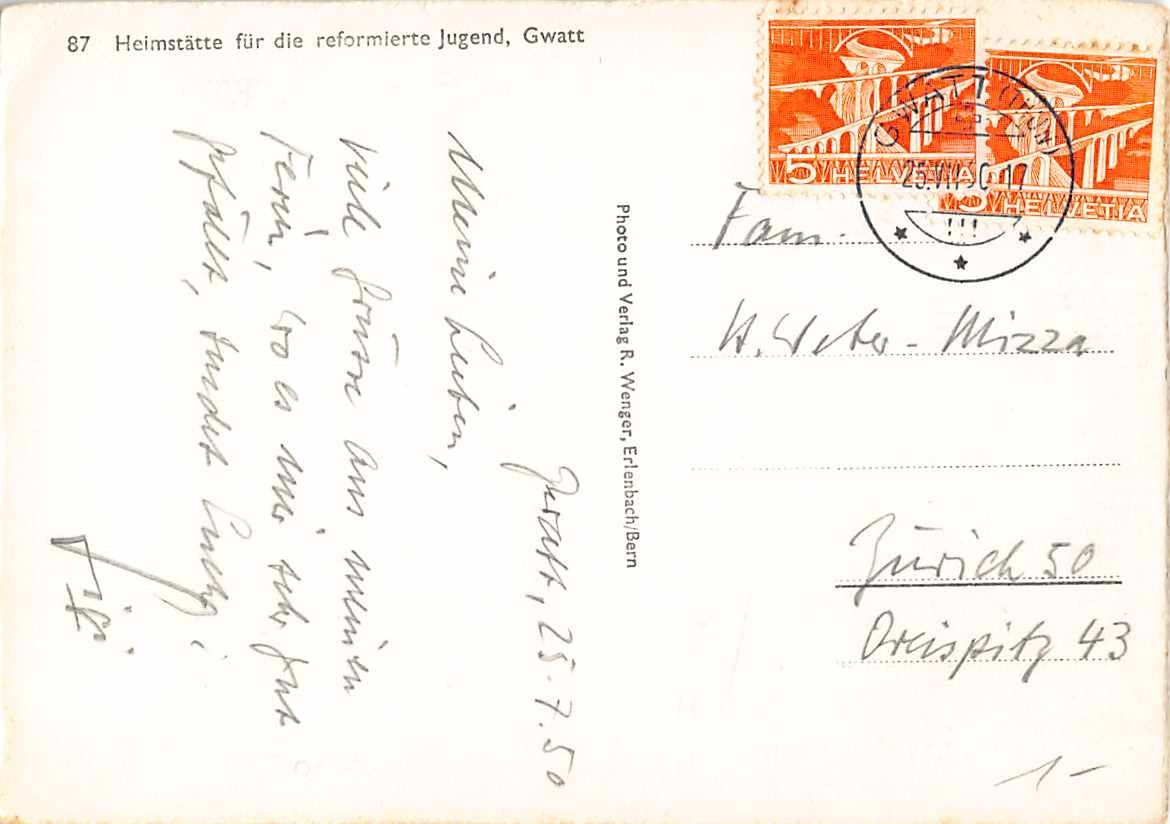 87 Heimstätte für die reformierte Jugend, Gwatt
Gwatt, 25.7.50
Meine Lieben,
viele Grüsse aus meinen
Ferien, wo es mir sehr gut
gefällt, sendet Euch
Photo und Verlag R. Wenger, Erlenbach/Bern
5 HELVETIA
5 HELVETIA
GWATT (THUN)
25.VII.50-17
Fam.
H. Weber-Mizza
Zürich 50
Dreispitz 43
1-